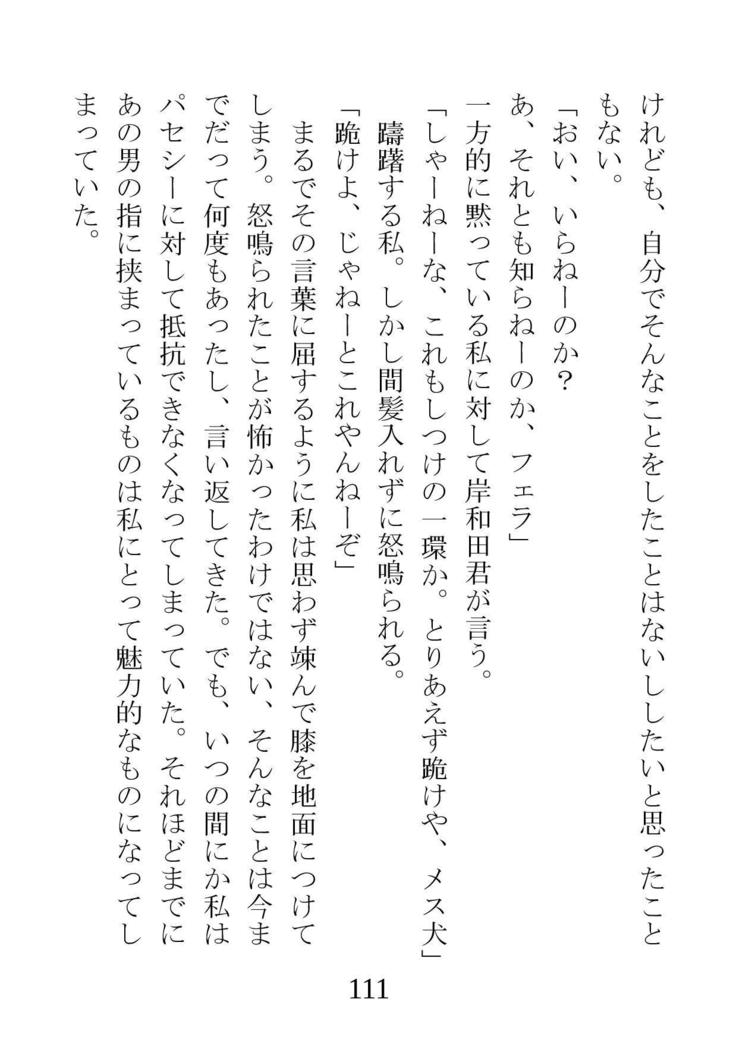 けれども、自分でそんなことをしたことはないししたいと思ったこと
もない。
「おい、いらねーのか？
あ、それとも知らねーのか、フェラ」
一方的に黙っている私に対して岸和田君が言う。
「しゃーねーな、これもしつけの一環か。とりあえず跪けや、メス犬」
躊躇する私。しかし間髪入れずに怒鳴られる。
「跪けよ、じゃねーとこれやんねーぞ」
まるでその言葉に屈するように私は思わず竦んで膝を地面につけて
しまう。怒鳴られたことが怖かったわけではない、そんなことは今ま
でだって何度もあったし、言い返してきた。でも、いつの間にか私は
パセシーに対して抵抗できなくなってしまっていた。それほどまでに
あの男の指に挟まっているものは私にとって魅力的なものになってし
まっていた。
111